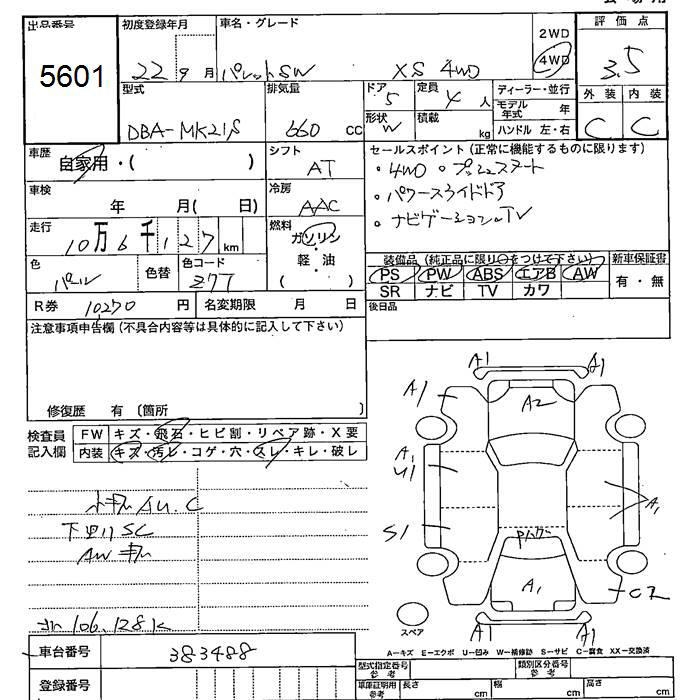 出品番号
5601
初度登録年月
22 9 月
車名・グレード
パレットSW XS 4WD
2WD
4WD
評価点
3.5
外装 内装
C C
型式
DBA-MK21S
排気量
660 cc
ドア
5
定員
4 人
形状
W
積載
kg
ディーラー・並行
モデル年式 年
ハンドル 左・右
車歴
自家用・( )
シフト
AT
セールスポイント (正常に機能するものに限ります)
・4WD ・プッシュスタート
・パワースライドドア
・ナビゲーション・TV
車検
年 月( 日)
冷房
AAC
走行
10万6千127 km
燃料
ガソリン
・
軽・油
( )
色
パール
色替
色コード
Z7T
装備品 (純正品に限り○をつけて下さい)
PS PW ABS エアB AW
SR ナビ TV カワ
新車保証書
有・無
R券 10,270 円
名変期限 月 日
後日品
注意事項申告欄 (不具合内容等は具体的に記入して下さい)
修復歴 有 〔箇所 〕
検査員記入欄
FW キズ・飛石・ヒビ割・リペア跡・X要
内装 キズ・汚レ・コゲ・穴・スレ・キレ・破レ
A.U.C
下回リSC
AWキズ
106,128K
A1 A1
A1 A2 A1
A1
U1
A1
S1
A1
C2
A1 A1
スペア
A-キズ E-エクボ U-凹み W-補修跡 S-サビ C-腐食 XX-交換済
車台番号
383488
登録番号
型式指定番号 参考
類別区分番号 参考
車庫証明用 参考
長さ cm
幅 cm
高さ cm